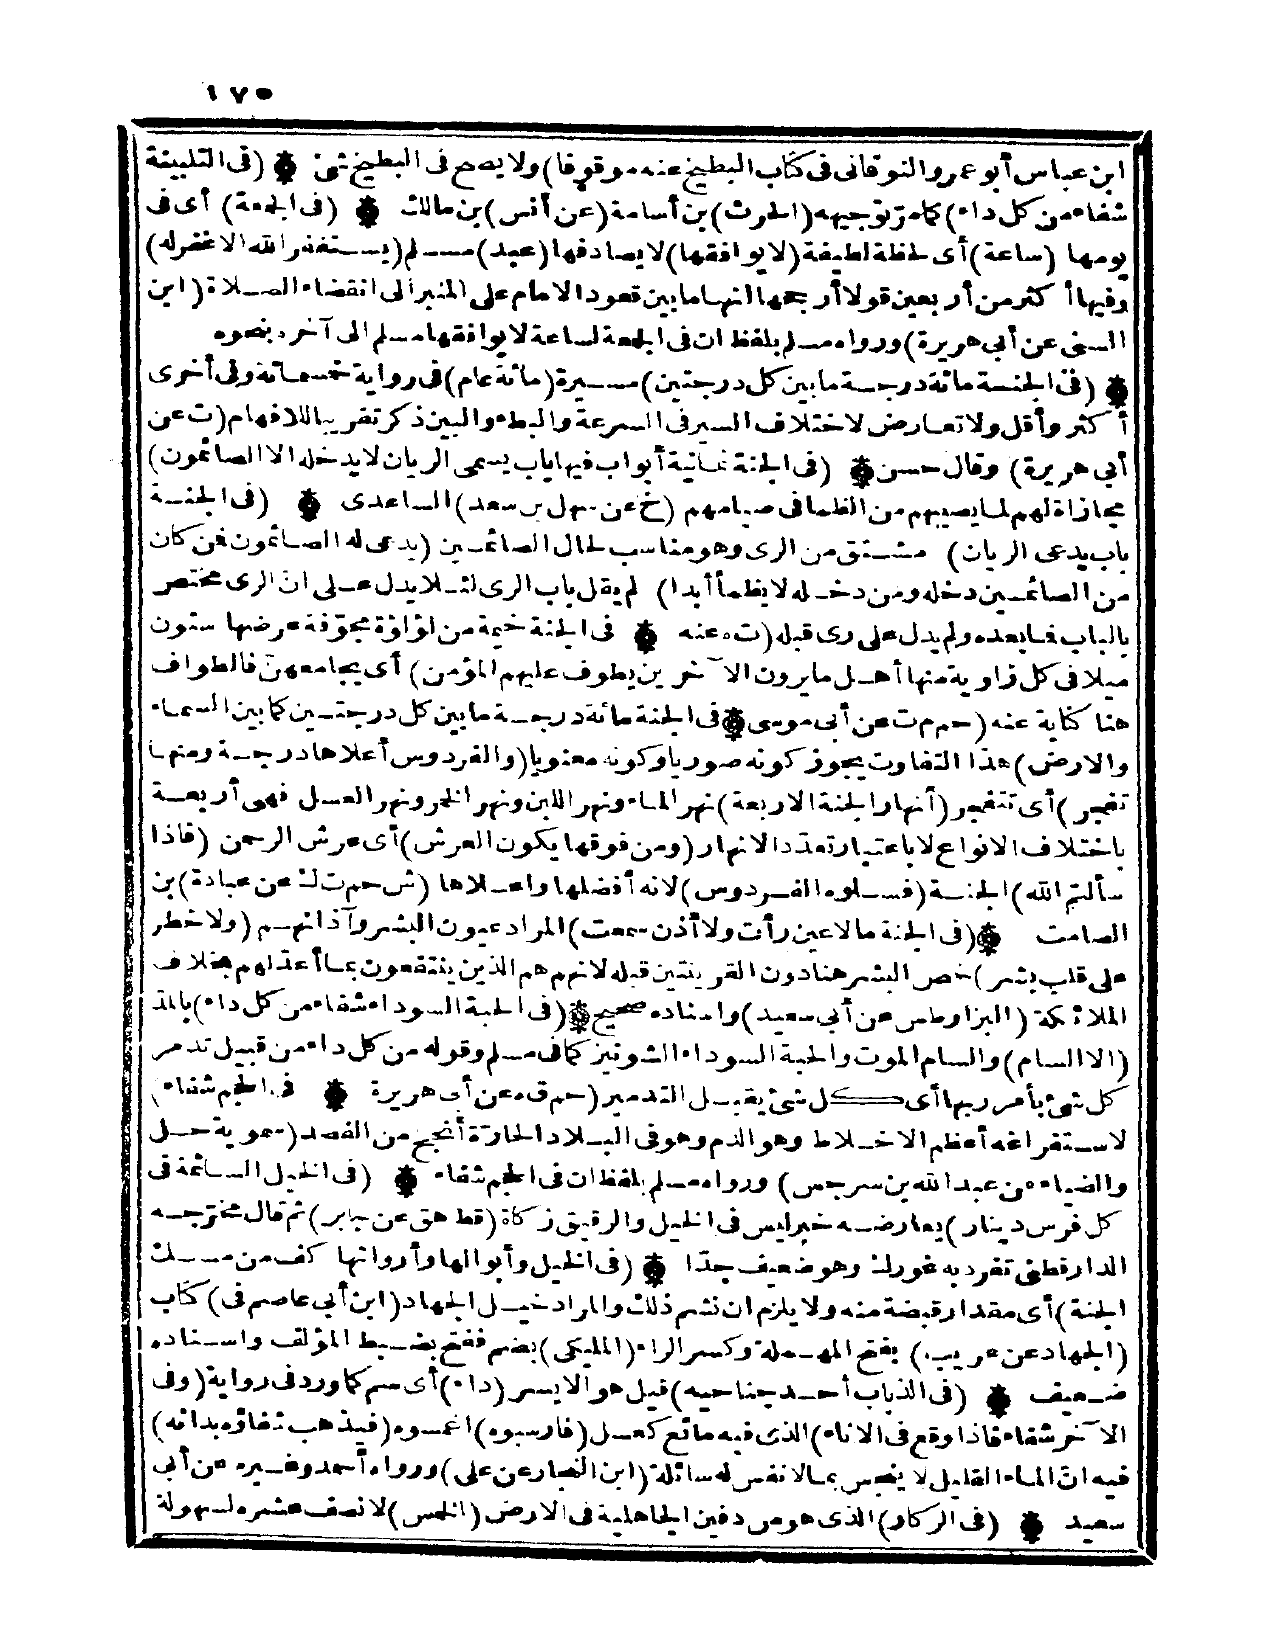 ١٧٥
ابن عباس أبو عمرو النوقانى فى كتاب البطيخ عنه موقوفا) ولا يصح فى البطيخ شئ (فى التلبينة
شفاء من كل داء) كما مر توجيهه (الحرث) بن أسامة (عن أنس) بن مالك (فى الجمعة) أى فى
يومها (ساعة) أى لحظة لطيفة (لا يوافقها) لا يصادفها (عبد) مسلم (يستغفر الله الا غفر له)
وفيها أكثر من أربعين قولا أرجحها انها ما بين قعود الامام على المنبر الى انقضاء الصلاة (ابن
السنى عن أبى هريرة) ورواه مسلم بلفظ ان فى الجمعة لساعة لا يوافقها مسلم الى آخره بنحوه
(فى الجنة مائة درجة ما بين كل درجتين) مسيرة (مائة عام) فى رواية خمسمائة وفى أخرى
أكثر وأقل ولا تعارض لاختلاف السير فى السرعة والبطء والبين ذكر تقريبا للافهام (ت عن
أبى هريرة) وقال حسن (فى الجنة ثمانية أبواب فيها باب يسمى الريان لا يدخله الا الصائمون)
مجازاة لهم لما يصيبهم من الظما فى صيامهم (خ عن سهل بن سعد) الساعدى (فى الجنة
باب يدعى الريان) مشتق من الرى وهو مناسب لحال الصائمين (يدعى له الصائمون فمن كان
من الصائمين دخله ومن دخله لا يظمأ أبدا) لم يقل باب الرى لئلا يدل على ان الرى مختصر
بالباب فما بعده ولم يدل على رى قبله (ت ه عنه فى الجنة خيمة من لؤلؤة مجوّفة عرضها ستون
ميلا فى كل زاوية منها أهل ما يرون الآخرين يطوف عليهم المؤمن) أى يجامعهنّ فالطواف
هنا كناية عنه (حم م ت عن أبى موسى فى الجنة مائة درجة ما بين كل درجتين كما بين السماء
والارض) هذا التفاوت يجوز كونه صوريا وكونه معنويا (والفردوس أعلاها درجة ومنها
تفجر) أى تتفجر (أنهار الجنة الاربعة) نهر الماء ونهر اللبن ونهر الخمر ونهر العسل فهى أربعة
باختلاف الانواع لا باعتبار تعدد الانهار (ومن فوقها يكون العرش) أى عرش الرحمن (فاذا
سألتم الله) الجنة (فسلوه الفردوس) لانه أفضلها واعلاها (ش حم ت ك عن عبادة) بن
الصامت (فى الجنة ما لا عين رأت ولا أذن سمعت) المراد عيون البشر وآذانهم (ولا خطر
على قلب بشر) خص البشر هنا دون القرينتين قبله لانهم هم الذين ينتفعون بما أعدّ لهم بخلاف
الملائكة (البزار وطس عن أبى سعيد) واسناده صحيح (فى الحبة السوداء شفاء من كل داء) بالمد
(الا السام) والسام الموت والحبة السوداء الشونيز كما فى مسلم وقوله من كل داء من قبيل تدمر
كل شئ بأمر ربها أى كل شئ يقبل التدمير (حم ق ه عن أبى هريرة فى الحجم شفاء)
لاستفراغه أعظم الاخلاط وهو الدم وهو فى البلاد الحارّة أنجح من الفصد (سمويه حل
والضياء عن عبد الله بن سرجس) ورواه مسلم بلفظ ان فى الحجم شفاء (فى الخيل السائمة فى
كل فرس دينار) يعارضه خبر ليس فى الخيل والرقيق زكاة (قط هق عن جابر) ثم قال مخرّجه
الدارقطنى تفرد به غورك وهو ضعيف جدّا (فى الخيل وأبوالها وأرواثها كف من مسك
الجنة) أى مقدار قبضة منه ولا يلزم ان نشم ذلك والمراد خيل الجهاد (ابن أبى عاصم فى) كتاب
(الجهاد عن عريب) بفتح المهملة وكسر الراء (المليكى) بضم ففتح بضبط المؤلف واسناده
ضعيف (فى الذباب أحد جناحيه) قيل هو الايسر (داء) أى سم كما ورد فى رواية (وفى
الآخر شفاء فاذا وقع فى الاناء) الذى فيه مائع كعسل (فارسبوه) اغمسوه (فيذهب شفاؤه بدائه)
فيه انّ الماء القليل لا ينجس بما لا نفس له سائلة (ابن النجار عن على) ورواه أحمد وغيره عن أبى
سعيد (فى الركاز) الذى هو من دفين الجاهلية فى الارض (الخمس) لا نصف عشره لسهولة